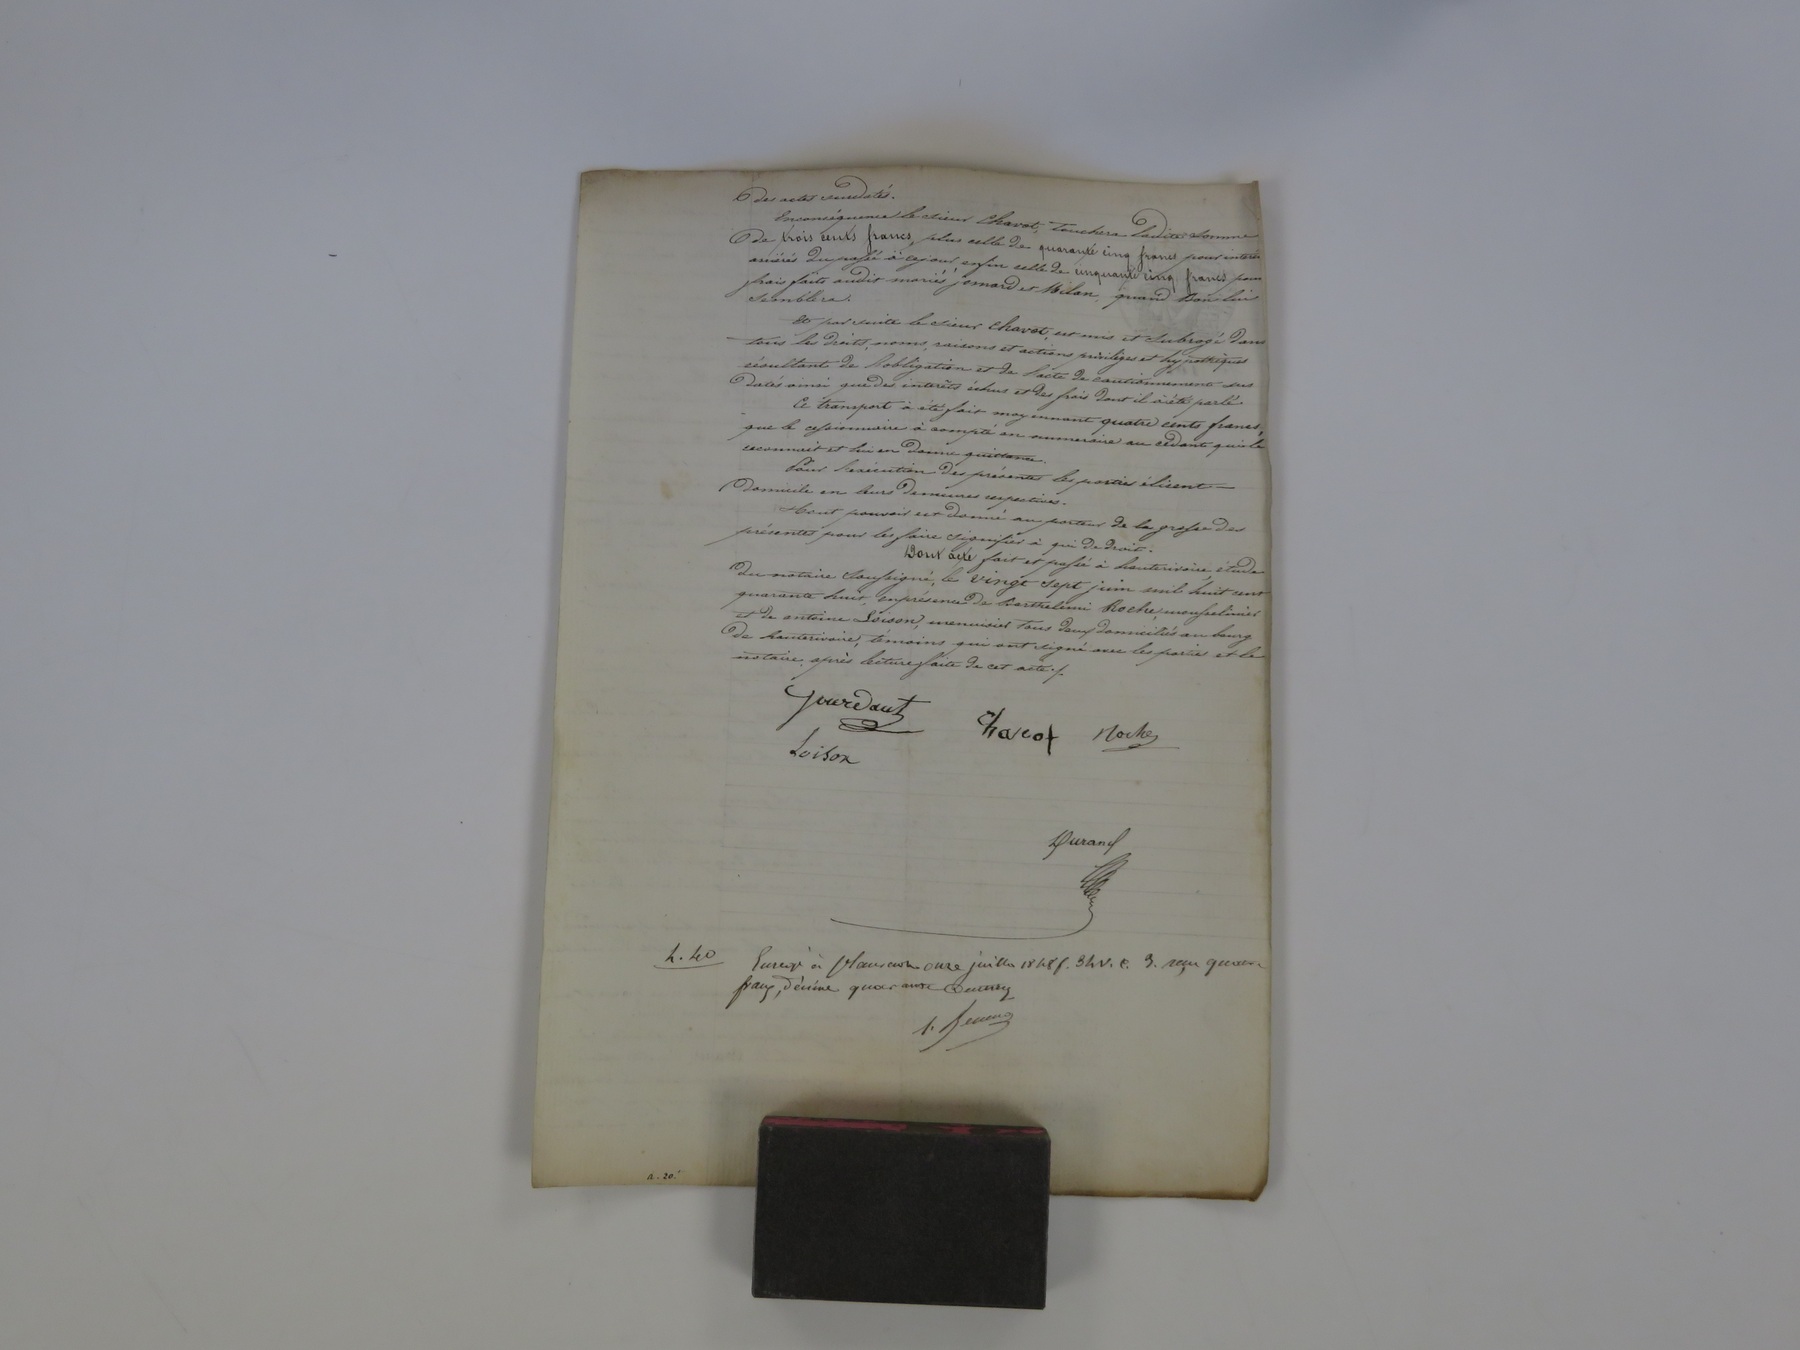 des actes susdatés.
Enconséquence le sieur Chavot, touchera ladite somme
de trois cents francs, plus celle de quarante cinq francs pour intérêts
arriérés du passé à cejour enfin celle de cinquante cinq francs pour
frais faits audit mariés jomard et Milan, quand bon lui
semblera.
Et par suite le sieur Chavot, est mis et subrogé dans
tous les droits, noms, raisons et actions privilèges et hypothèques
résultants de l'obligation et de l'acte de cautionnement sus
datés ainsi que des intérêts échus et des frais dont il a été parlé
Ce transport à été fait moyennant quatre cents francs,
que le cessionnaire à compté en numéraire au cédant qui le
reconnait et lui en donne quittance.
Pour l'exécution des présentes les parties élisent
domicile en leurs demeures respectives.
Tout pouvoir est donné au porteur de la grosse des
présentes pour les faire signifier à qui de droit.
Dont acte fait et passé à hauterivoire, étude
du notaire soussigné, le vingt sept juin mil huit cent
quarante huit, enprésence de Barthelemi Roche, mousselinier
et de antoine Loison, menuisier tous deux domiciliés au bourg
de hauterivoire, témoins qui ont signé avec les parties et le
notaire, après lecture faite de cet acte./.
Jourdant Chavot Roche
Loison
Durand
4.40 Enregé à onze juillet 1848 f. 34 v. c. 3. reçu quatre
francs, décime quarante centimes
a. 20.